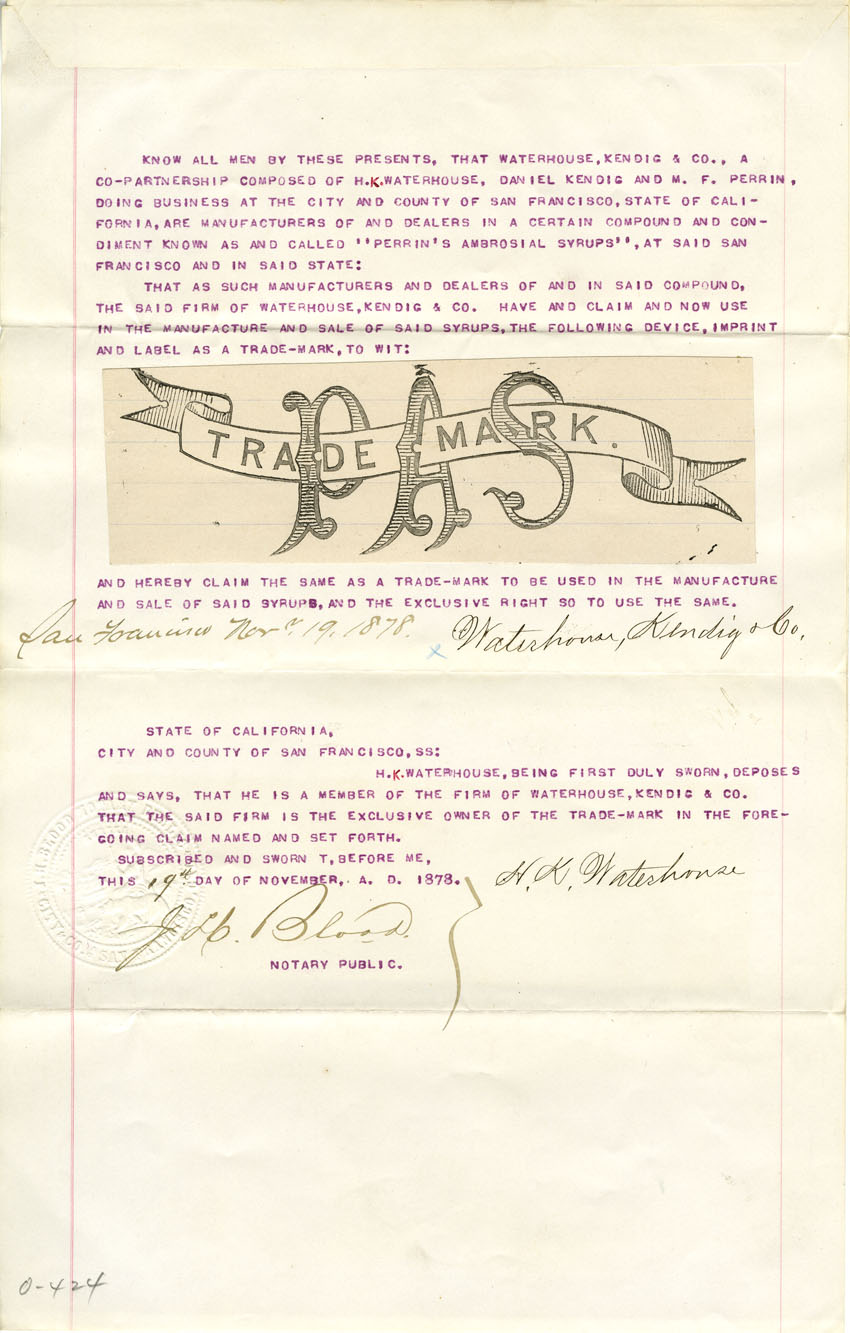 KNOW ALL MEN BY THESE PRESENTS, THAT WATERHOUSE,KENDIG & CO., A
CO-PARTNERSHIP COMPOSED OF H.K.WATERHOUSE, DANIEL KENDIG AND M. F. PERRIN,
DOING BUSINESS AT THE CITY AND COUNTY OF SAN FRANCISCO,STATE OF CALI-
FORNIA,ARE MANUFACTURERS OF AND DEALERS IN A CERTAIN COMPOUND AND CON-
DIMENT KNOWN AS AND CALLED "PERRIN'S AMBROSIAL SYRUPS", AT SAID SAN
FRANCISCO AND IN SAID STATE:
THAT AS SUCH MANUFACTURERS AND DEALERS OF AND IN SAID COMPOUND,
THE SAID FIRM OF WATERHOUSE,KENDIG & CO. HAVE AND CLAIM AND NOW USE
IN THE MANUFACTURE AND SALE OF SAID SYRUPS,THE FOLLOWING DEVICE,IMPRINT
AND LABEL AS A TRADE-MARK,TO WIT:
PAS
TRADE MARK.
AND HEREBY CLAIM THE SAME AS A TRADE-MARK TO BE USED IN THE MANUFACTURE
AND SALE OF SAID SYRUPS,AND THE EXCLUSIVE RIGHT SO TO USE THE SAME.
San Francisco Novr 19, 1878. x Waterhouse, Kendig & Co.
STATE OF CALIFORNIA,
CITY AND COUNTY OF SAN FRANCISCO,SS:
H.K.WATERHOUSE,BEING FIRST DULY SWORN,DEPOSES
AND SAYS, THAT HE IS A MEMBER OF THE FIRM OF WATERHOUSE,KENDIG & CO.
THAT THE SAID FIRM IS THE EXCLUSIVE OWNER OF THE TRADE-MARK IN THE FORE-
GOING CLAIM NAMED AND SET FORTH.
SUBSCRIBED AND SWORN T,BEFORE ME,
THIS 19th DAY OF NOVEMBER, A. D. 1878. H. K. Waterhouse
J. H. Blood.
NOTARY PUBLIC.
J.H. BLOOD
0-424